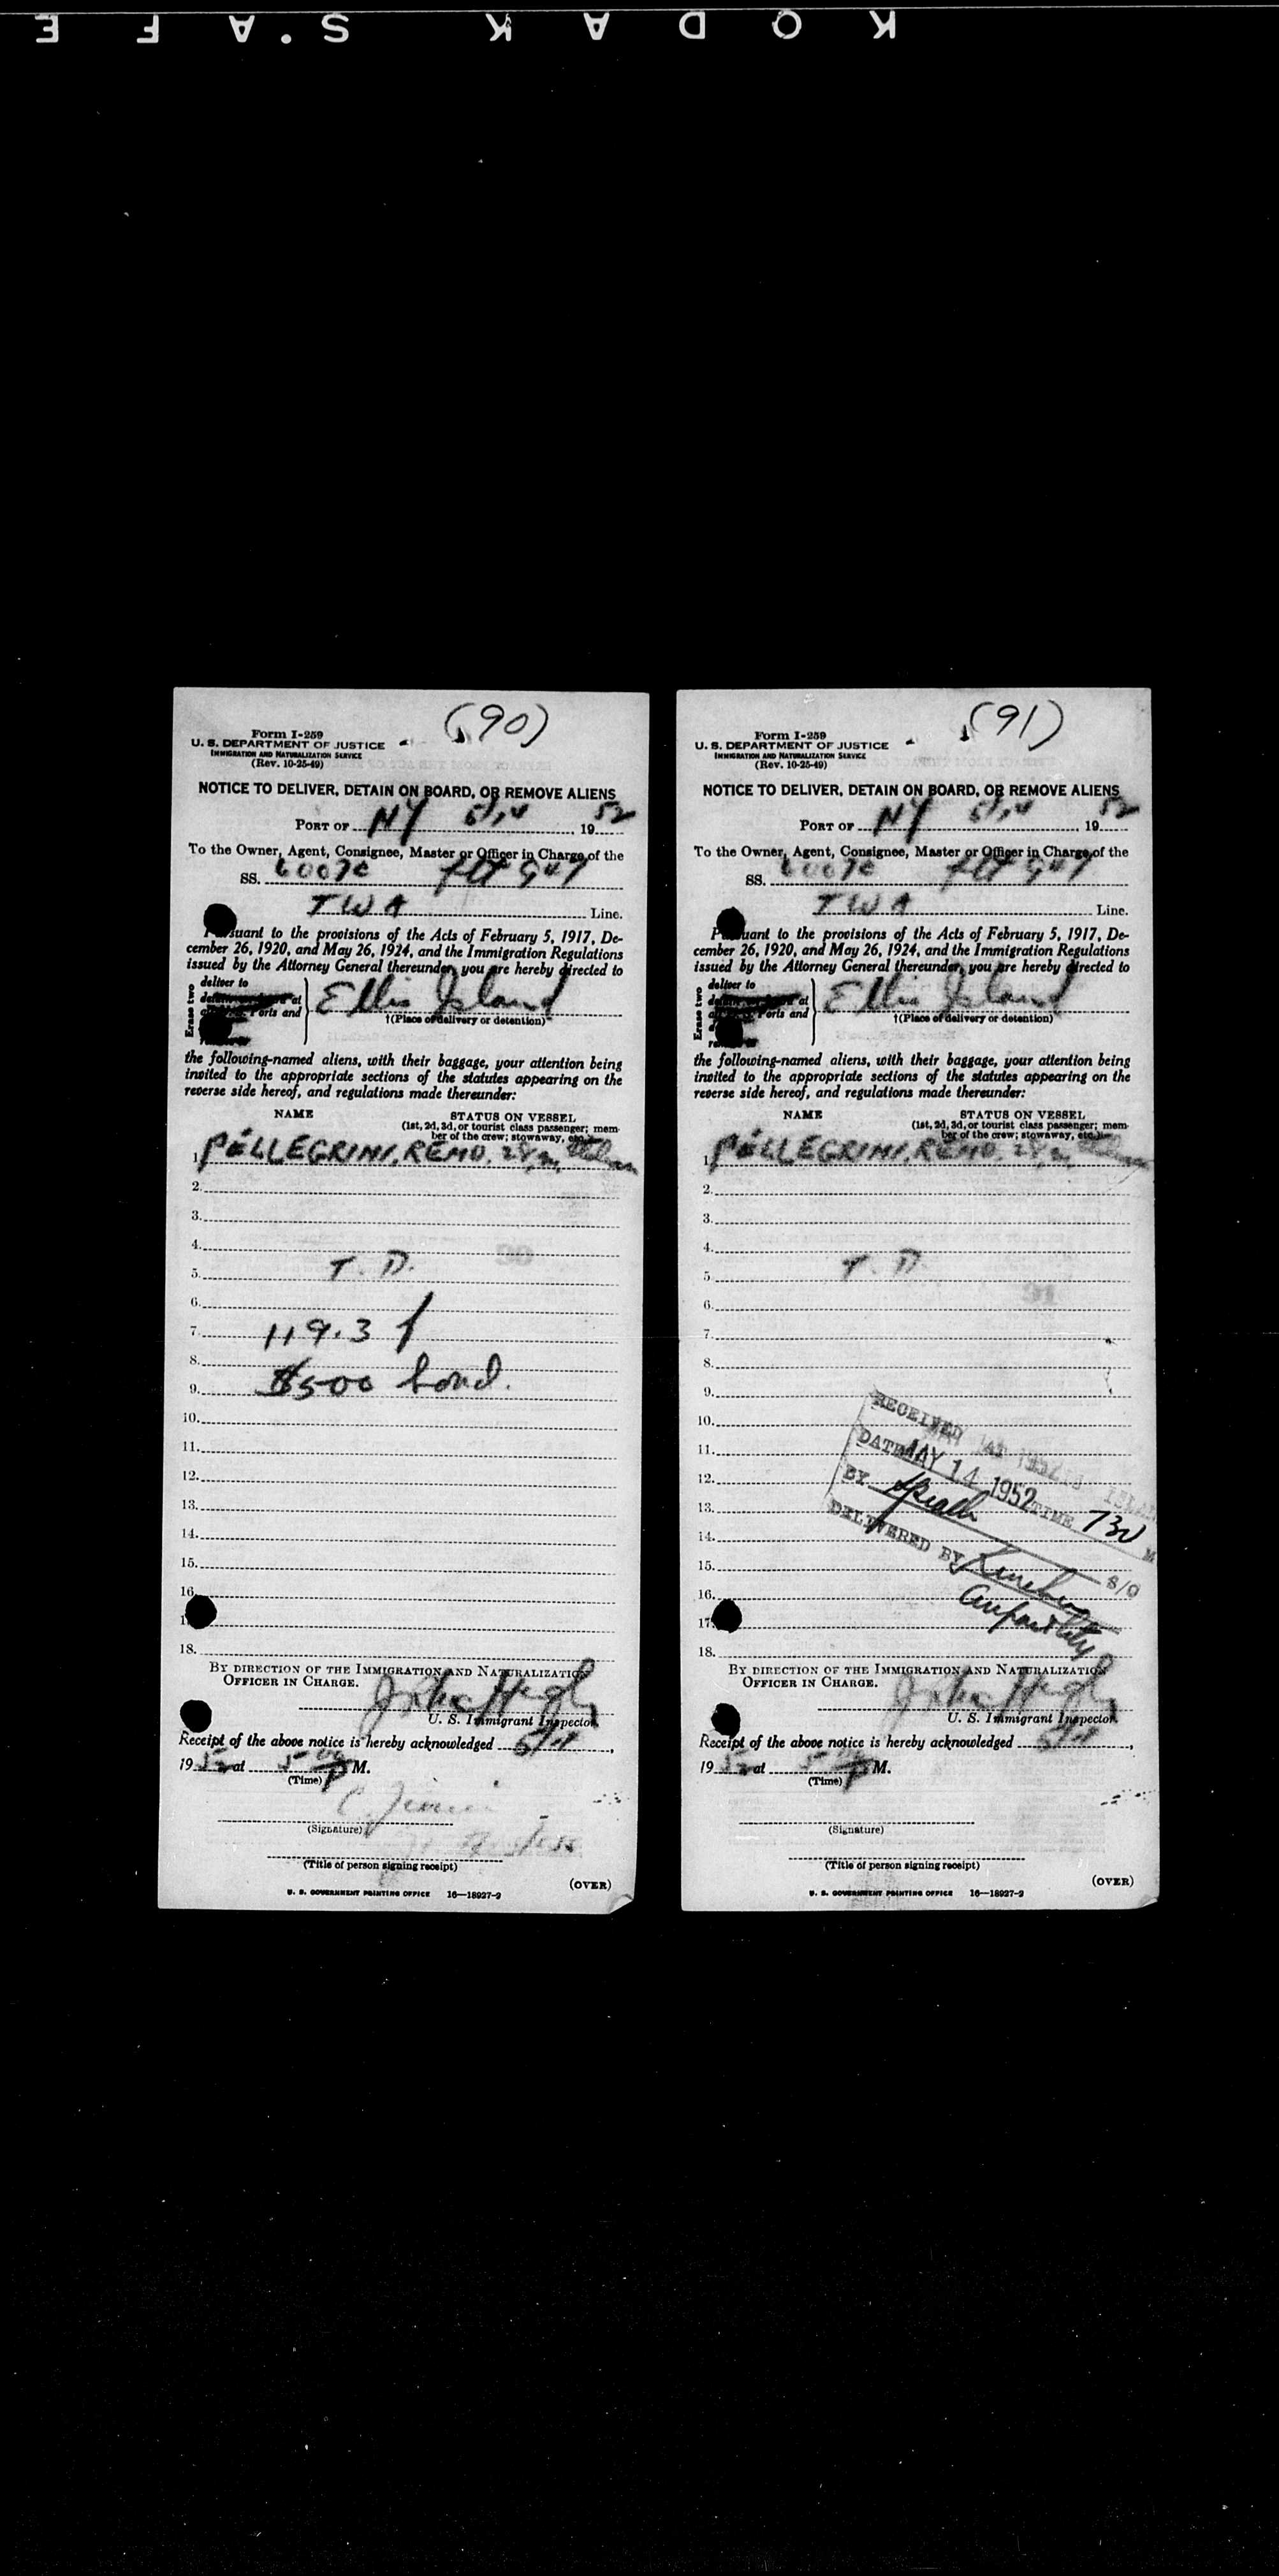 KODAK S.A F E
(90)
Form I-259
U. S. DEPARTMENT OF JUSTICE
IMMIGRATION AND NATURALIZATION SERVICE
(Rev. 10-25-49)
NOTICE TO DELIVER, DETAIN ON BOARD, OR REMOVE ALIENS
PORT OF NY 5/14 1952
To the Owner, Agent, Consignee, Master or Officer in Charge of the
SS. 6007C flt 947
TWA Line.
Pursuant to the provisions of the Acts of February 5, 1917, De-
cember 26, 1920, and May 26, 1924, and the Immigration Regulations
issued by the Attorney General thereunder, you are hereby directed to
Erase two
deliver to
at
Ports and
Ellis Island
†(Place of delivery or detention)
the following-named aliens, with their baggage, your attention being
invited to the appropriate sections of the statutes appearing on the
reverse side hereof, and regulations made thereunder:
NAME STATUS ON VESSEL
(1st, 2d, 3d, or tourist class passenger; mem-
ber of the crew; stowaway, etc.)
1. PELLEGRINI, REMO. 28, m,
2.
3.
4.
5. T. D.
6.
7. 119.3 f
8.
9. $500 bond.
10.
11.
12.
13.
14.
15.
16.
17.
18.
BY DIRECTION OF THE IMMIGRATION AND NATURALIZATION
OFFICER IN CHARGE.
U. S. Immigrant Inspector.
Receipt of the above notice is hereby acknowledged 5/14,
1952 at 5 P M.
(Time)
(Signature)
(Title of person signing receipt)
(OVER)
U. S. GOVERNMENT PRINTING OFFICE 16—18927-2
(91)
Form I-259
U. S. DEPARTMENT OF JUSTICE
IMMIGRATION AND NATURALIZATION SERVICE
(Rev. 10-25-49)
NOTICE TO DELIVER, DETAIN ON BOARD, OR REMOVE ALIENS
PORT OF NY 5/14 1952
To the Owner, Agent, Consignee, Master or Officer in Charge of the
SS. 6007C flt 947
TWA Line.
Pursuant to the provisions of the Acts of February 5, 1917, De-
cember 26, 1920, and May 26, 1924, and the Immigration Regulations
issued by the Attorney General thereunder, you are hereby directed to
Erase two
deliver to
at
Ports and
Ellis Island
†(Place of delivery or detention)
the following-named aliens, with their baggage, your attention being
invited to the appropriate sections of the statutes appearing on the
reverse side hereof, and regulations made thereunder:
NAME STATUS ON VESSEL
(1st, 2d, 3d, or tourist class passenger; mem-
ber of the crew; stowaway, etc.)
1. PELLEGRINI, REMO. 28, m,
2.
3.
4.
5. T. D.
6.
7.
8.
9.
10.
11.
12.
13.
14.
15.
16.
17.
18.
RECEIVED AT ISLAND
DATE MAY 14 1952 TIME 730 M
BY S/O
DELIVERED BY
BY DIRECTION OF THE IMMIGRATION AND NATURALIZATION
OFFICER IN CHARGE.
U. S. Immigrant Inspector.
Receipt of the above notice is hereby acknowledged 5/14,
1952 at 5 P M.
(Time)
(Signature)
(Title of person signing receipt)
(OVER)
U. S. GOVERNMENT PRINTING OFFICE 16—18927-2